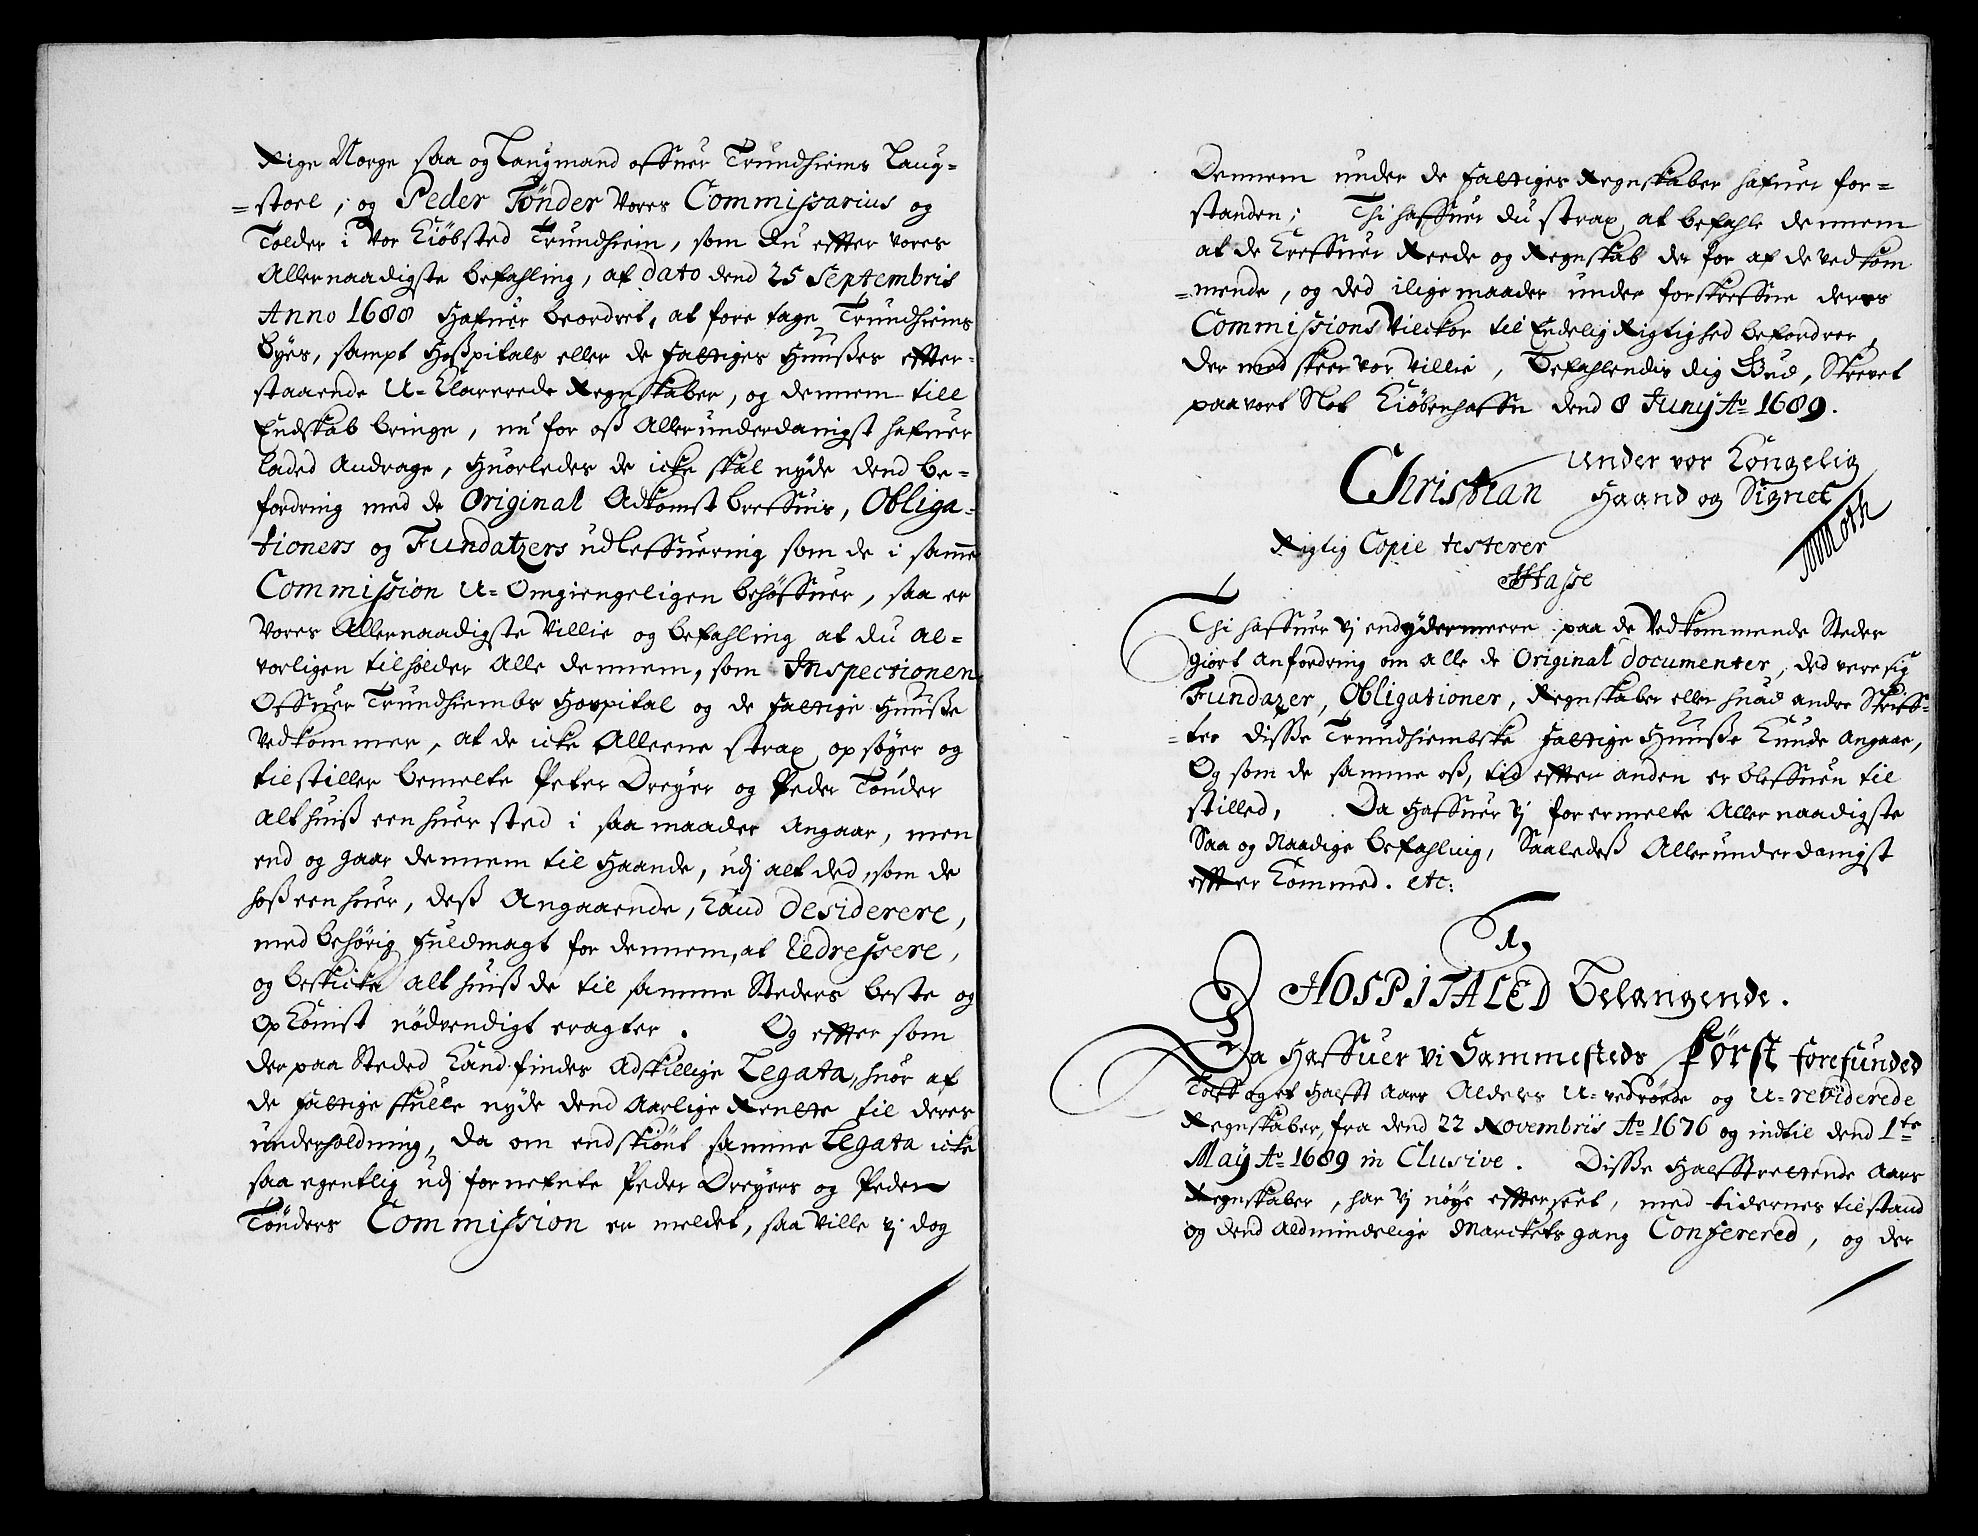 Rige Norge saa og Laugmand offuer Trundhiems Laug-
=stoel, og Peder Tønder Vores Commissarius og
Tolder i Vor Kiøbsted Trundhiem, som du effter vores
Allernaadigste befahling, af dato dend 25 Septembris
Anno 1688 Hafuer beordret, at fore tage Trundhiems
byes, sampt Hoßpitals eller de fattiges Huußes effter-
staaende U-Klarerede Regnskaber, og dennem till
Endskab bringe, nu for oß Allerunderdanigst hafuer
laded Andrage, Huorledes de icke skal nyde dend be-
fordring med de Original Adkomst breffuis, Obliga-
tioners og Fundatzers udleffuering som de i samme
Commission U-Omgiengeligen behøffuer, saa er
Vores Allernaadigste Villie og befahling at du al-
vorligen tilholder Alle dennem, som Inspectionen
Offuer Trundhiembs Hospital og de fattige Huuße
Vedkommer, at de icke Alleene strax opsøger og
tilstiller bemelte Peter Dreyer og Peder Tønder
Alt huiß een huer sted i saa maader Angaar, men
end og gaar dennem til Haande, udj alt ded, som de
hoß een huer, deß Angaaende, kand desiderere,
med behørig fuldmagt for dennem, at redressere,
og beskicke alt huiß de til samme Steders beste og
Opkomst nødvendigt eragter. Og effter som
der paa Steded kand findes Adskillige Legata, huor af
de fattige skulle nyde dend Aarlige Rentte til deres
underholdning, da om endskiønt samme Legata icke
saa egentlig udj fornefnte Peder Dreyers og Peder
Tønders Commission er meldet, saa Ville vj dog
Dennem under de fattiges Regnskaber hafuer for-
standen; Thi haffuer du strax at befahle dennem
at de Kreffuer Reede og Regnskab der for af de vedkom
=mende, og ded ilige maader under forskreffne deres
Commissions Vilckor til Endelig Rigtighed befordrer,
der med skeer vor Villie, Befahlendis dig Gud, Skrevet
paa vort Slot Kiøbenhaffn dend 8 Junij Ao 1689.
Under vor Kongelig
Christian Haand og Signet
Moth
Rigtig Copie testerer
Hasse
Thi haffuer vj end ydermeere paa de Vedkommende Steder
giort anfordring om alle de Original documenter, ded vere sig
Fundazer, Obligationer, Regnskaber eller huad andre Skriff-
=ter disse Trundhiembske fattige Huuße kunde angaae,
Og som de samme oß, tid effter anden er bleffuen til
stilled, Da Haffuer vj for ermelte Allernaadigste
Saa og Naadige befahling, Saaledeß Allerunderdanigst
effterkommed. etc:
1,
HOSPITALED Belangende.
Da Haffuer vi Sammesteds Først forefunded
Tolff og et Halfft Aars Alders U-rørede og U-reviderede
Regnskaber, fra dend 22 Novembris Ao 1676 og indtil dend 1te
Maij Ao 1689 in Clusive. Disse Halfftrettende Aars
Regnskaber, har vj nøye efftersect, med tidernes tilstand
og dend Aldmindelige Marckets gang Confererred, og der